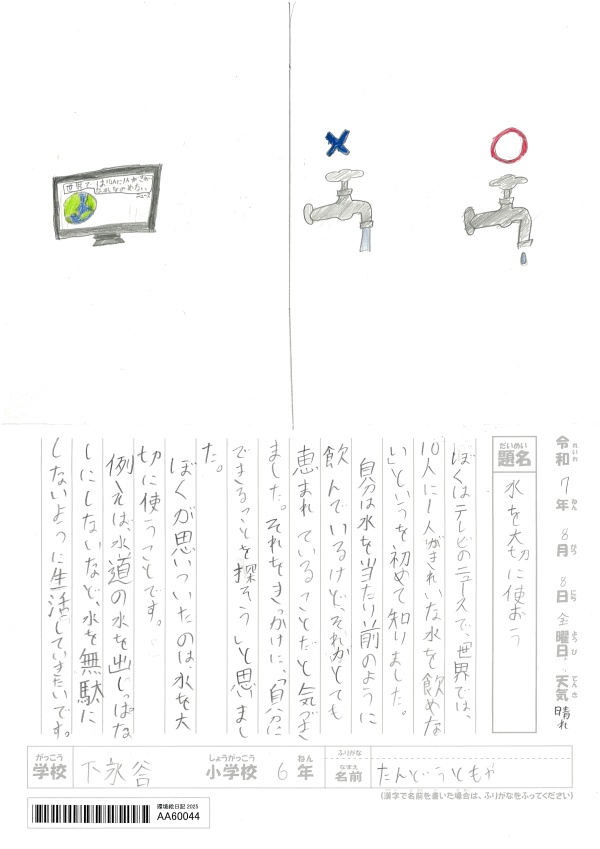 世界で、
ニュース
令和7年8月8日金曜日 天気 晴れ
れいわ ねん がつ にち ようび てんき
だいめい
題名 水を大切に使おう
ぼくはテレビのニュースで、「世界では、
10人に1人がきれいな水を飲めな
い」というを初めて知りました。
自分は水を当たり前のように
飲んでいるけど、それがとても
恵まれていることだと気づき
ました。それをきっかけに、「自分に
できることを探そう」と思いまし
た。
ぼくが思いついたのは、水を大
切に使うことです。
例えば、水道の水を出しっぱな
しにしないなど、水を無駄に
しないように生活していきたいです。
がっこう しょうがっこう ねん ふりがな
学校 下永谷 小学校 6年
なまえ
名前 たんどうともや
(漢字で名前を書いた場合は、ふりがなをふってください)
環境絵日記 2025
AA60044